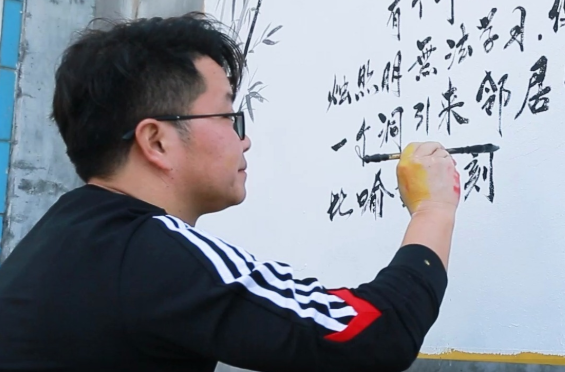 有
烛照明無法学习.
一个洞引来邻居
比喻 刻